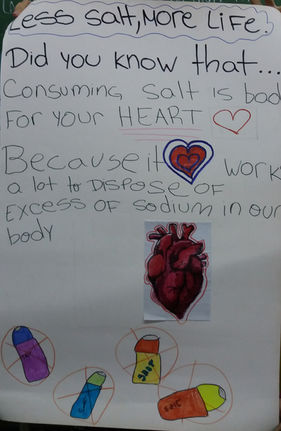 Less Salt, More Life!
Did you know that...
Consuming Salt is bad
For your HEART
Because it work
a lot to Dispose of
excess of sodium in our
body
SALT